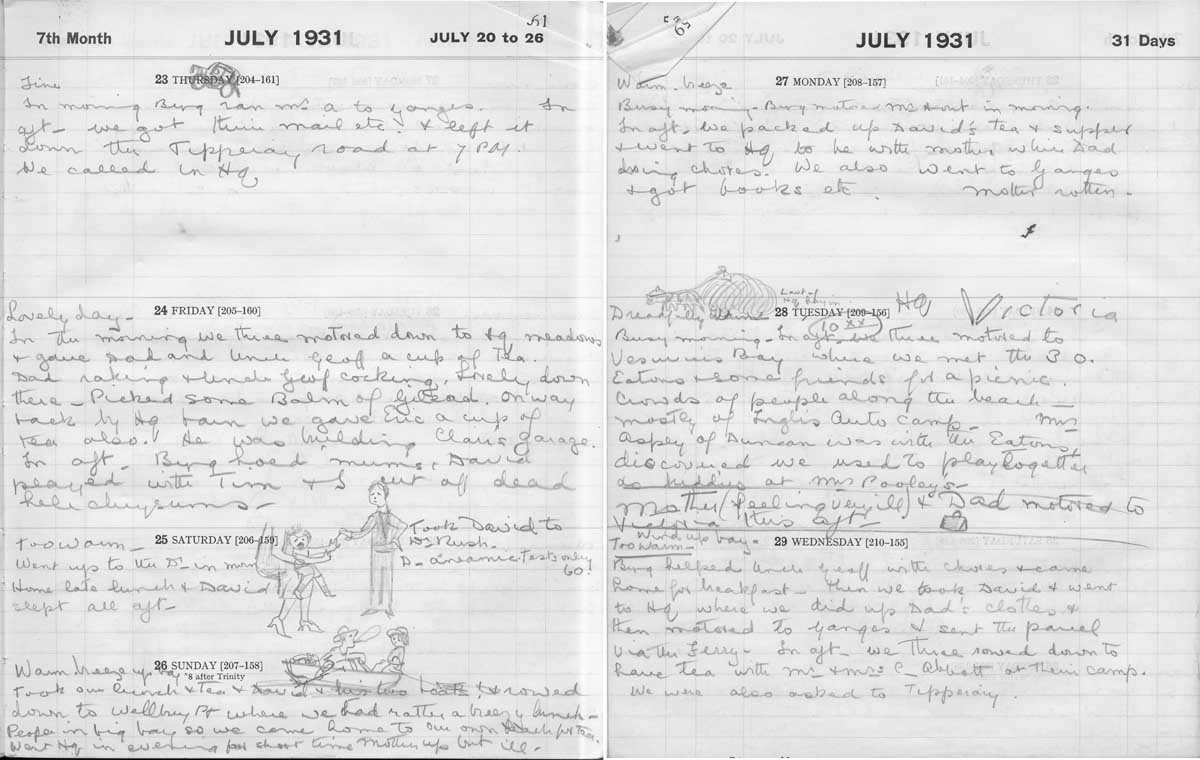 51
7th Month JULY 1931 JULY 20 to 26
23 THURSDAY [204-161]
Fine
In morning Berg ran Ms a to Ganges. In
aft- we got their mail etc. & left it
down the Tipperary road at 7 PM.
We called in HQ
24 FRIDAY [205-160]
Lovely day-
In the morning we three motored down to HQ meadows
& gave Dad and Uncle Geoff a cup of tea.
Dad raking & Uncle Geof cocking. Lovely down
there - Picked some Balm of Gilead. On way
back by HQ barn we gave Eric a cup of
tea also. He was building Claire's garage.
In aft- Berg hoed mums, David
played with Tim & I cut off dead
helichrysums-
25 SATURDAY [206-159]
Too warm-
Went up to the Dr in morn
Home late lunch & David
slept all aft-
Took David to
Dr Rush.
D- anaemic, Tests only
60!
26 SUNDAY [207-158]
*8 after Trinity
Warm breeze up bay
Took our lunch & tea & David & his two boats & rowed
down to Wellbury Pt where we had rather a breezy lunch-
People in big bay so we came home to our own beach for tea.
Went HQ in evening for short time Mother up but ill-
JULY 1931 31 Days
27 MONDAY [208-157]
Warm- breeze
Busy morning- Berg motored Ms A out in morning.
In aft- we packed up David's tea & supper
& went to HQ to be with mother while Dad
doing chores. We also went to Ganges
& got books etc. Mother rotten-
Last of
HQ hay in
28 TUESDAY [209-156]
HQ Victoria
Dreadfully warm
10 xx
Busy morning- In aft- we three motored to
Vesuvius Bay where we met the B.O.
Eatons & some friends for a picnic.
Crowds of people along the beach-
mostly of Inglis Auto Camp- Mrs
Aspley of Duncan was with the Eatons,
discovered we used to play together
as kiddies at Mrs Pooley's-
Mother (feeling very ill) & Dad motored to
Victoria this aft-
29 WEDNESDAY [210-155]
Wind up bay-
Too warm-
Berg helped Uncle Geoff with chores & came
home for breakfast- Then we took David & went
to HQ where we did up Dad's clothes &
then motored to Ganges & sent the parcel
via the Ferry- In aft- we three rowed down to
have tea with Mr & Mrs C- Abbott at their camp.
We were also asked to Tipperary.